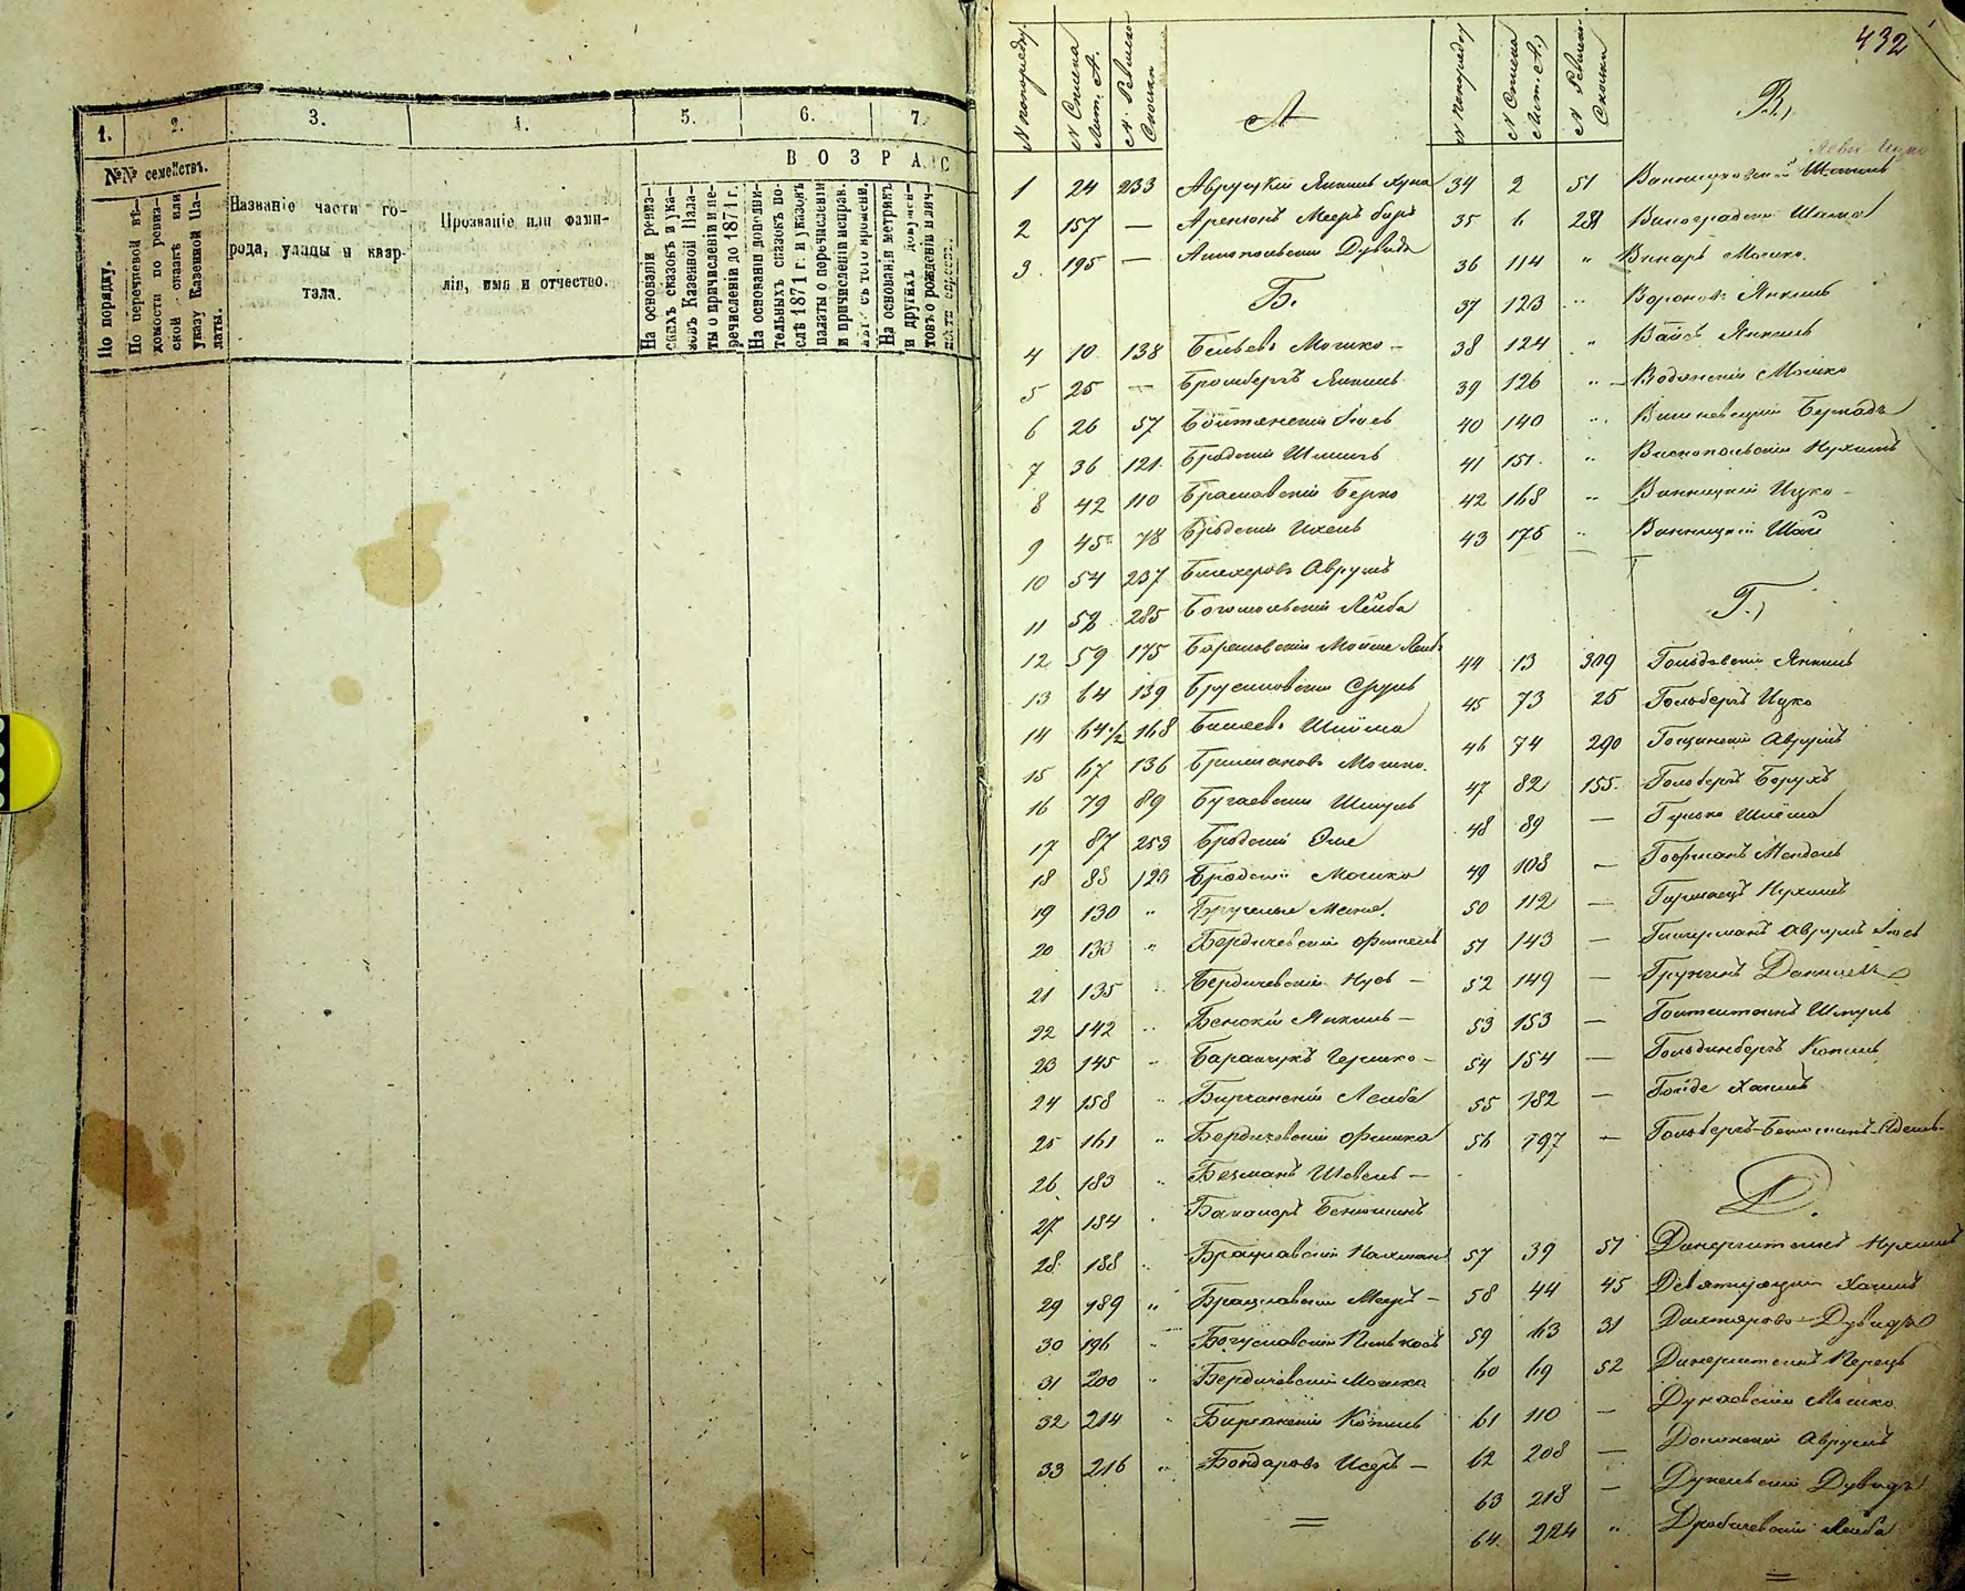 1.
2.
3.
4.
5.
6.
7.
№№ семействъ.
ВОЗРАС
По порядку.
По перечневой вѣ-
домости по ревиз-
ской сказкѣ или
указу Казенной Па-
латы.
Названіе части го-
рода, улицы и квар-
тала.
Прозваніе или фами-
лія, имя и отчество.
На основаніи ревиз-
скихъ сказокъ и ука-
зовъ Казенной Пала-
ты о причисленіи и пе-
речисленіи до 1871 г.
На основаніи дополни-
тельныхъ сказокъ по-
слѣ 1871 г. и указовъ
палаты о перечисленіи
и причисленіи исправ.
На основаніи метрикъ
и другихъ докумен-
товъ о рожденіи и лич-
432
N попорядку
N Списка Лит. А.
N. Ревизск Сказки
А
1 24 233 Авруцкій Янкель Хуна
2 157 — Аренгонъ Мееръ Беръ
3. 195 — Антопольскій Дувидъ
Б.
4 10 138 Бельевъ Мошко —
5 25 — Бромбергъ Янкель
6 26 57 Бойтянскій Іосъ
7 36 121. Бродскій Шмиль
8 42 110 Браславскій Берко
9 45 78 Бродскій Ихель
10 54 237 Блихеровъ Аврумъ
11 58 285 Богомольскій Лейба
12 59 175 Барановскій Мойше Лейб
13 64 139 Брусиловскій Сруль
14 64½ 168 Билеевъ Шлёма
15 67 136 Бримановъ Мошко.
16 79 89 Бугаевскій Шмуль
17 87 253 Бродскій Эле
18 88 123 Бродскій Мошко
19 130 "
20 133 " Бердичевскій Фишель
21 135 Бердичевскій Нусъ —
22 142 " Бенскій Янкель —
23 145 " Баранчукъ Гершко —
24 158 " Бирганскій Лейба
25 161 " Бердичевскій Фишка
26 183 " Безманъ Шевель —
27 184 Балагоръ Бенюминъ
28 188 " Брацлавскій Нахман
29 189 " Брацлавскій Мееръ —
30 196 " Богуславскій Пинькосъ
31 200 " Бердичевскій Мошко
32 214 " Бирганскій Копель
33 216 " Бондаровъ Исеръ —
N попорядку
N Списка Лит. А.
N Ревизск Сказки
В.
34 2 51 Винницковскій
35 6 281 Виноградскій Шлёма
36 114 " Винаръ Мошко.
37 123 " Вороновъ Янкель
38 124 " Вайсъ Янкель
39 126 " — Водянскій Мошко
40 140 " Вишневецкій Бернадъ
41 151. " Вископольскій Нухимъ
42 168 " Винницкій Ицко —
43 176 " Винницкій Шай
Г.
44 13 309 Гольдовскій Янкель
45 73 25 Гольбергъ Ицко
46 74 290 Гощинскій Аврумъ
47 82 155. Гольбергъ Борухъ
48 89 — Гулько Шлёма
49 108 — Гофманъ Мендель
50 112 — Гармаецъ Нухимъ
51 143 — Гитерманъ Аврумъ Іосъ
52 149 — Грузинъ Даниилъ
53 153 — Гольтштейнъ Шмуль
54 154 — Гольдинбергъ Копель
55 182 — Гойде Хаимъ
56 197 — Гольбергъ-Бенюминъ-Юдель
Д.
57 39 51 Динерштейнъ Нухимъ
58 44 45 Девятицкій Хаимъ
59 63 31 Дихтяровъ — Дувидъ
60 69 52 Динерштейнъ Перецъ
61 110 — Дунаевскій Мошко
62 208 — Долинскій Аврумъ
63 218 — Дукельскій Дувидъ
64 224 " Дробичевскій Лейба